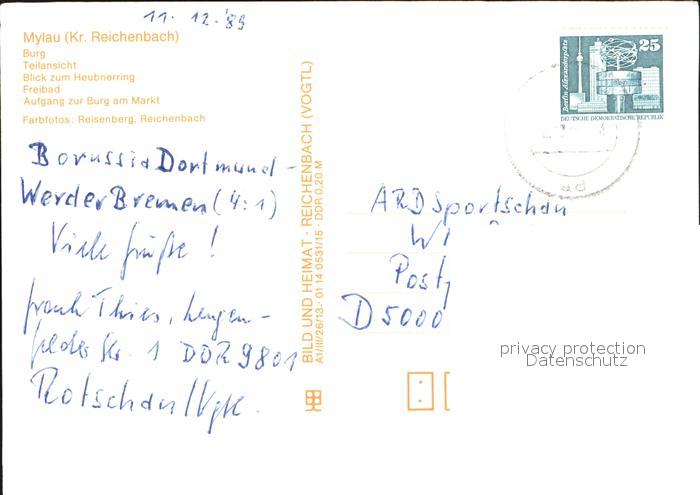 11. 12. '89
Mylau (Kr. Reichenbach)
Burg
Teilansicht
Blick zum Heubnerring
Freibad
Aufgang zur Burg am Markt
Farbfotos: Reisenberg, Reichenbach
Borussia Dortmund -
Werder Bremen (4:1)
Viele Grüße!
Frank Thies, Lengen-
felder Str. 1 DDR 9801
Rotschau/Vgtl.
BILD UND HEIMAT · REICHENBACH (VOGTL)
A1/III/26/13 · 01 14 0531/15 · DDR 0,20 M
Berlin, Alexanderplatz
25
DEUTSCHE DEMOKRATISCHE REPUBLIK
ARD Sportschau
Post
D 5000
privacy protection
Datenschutz